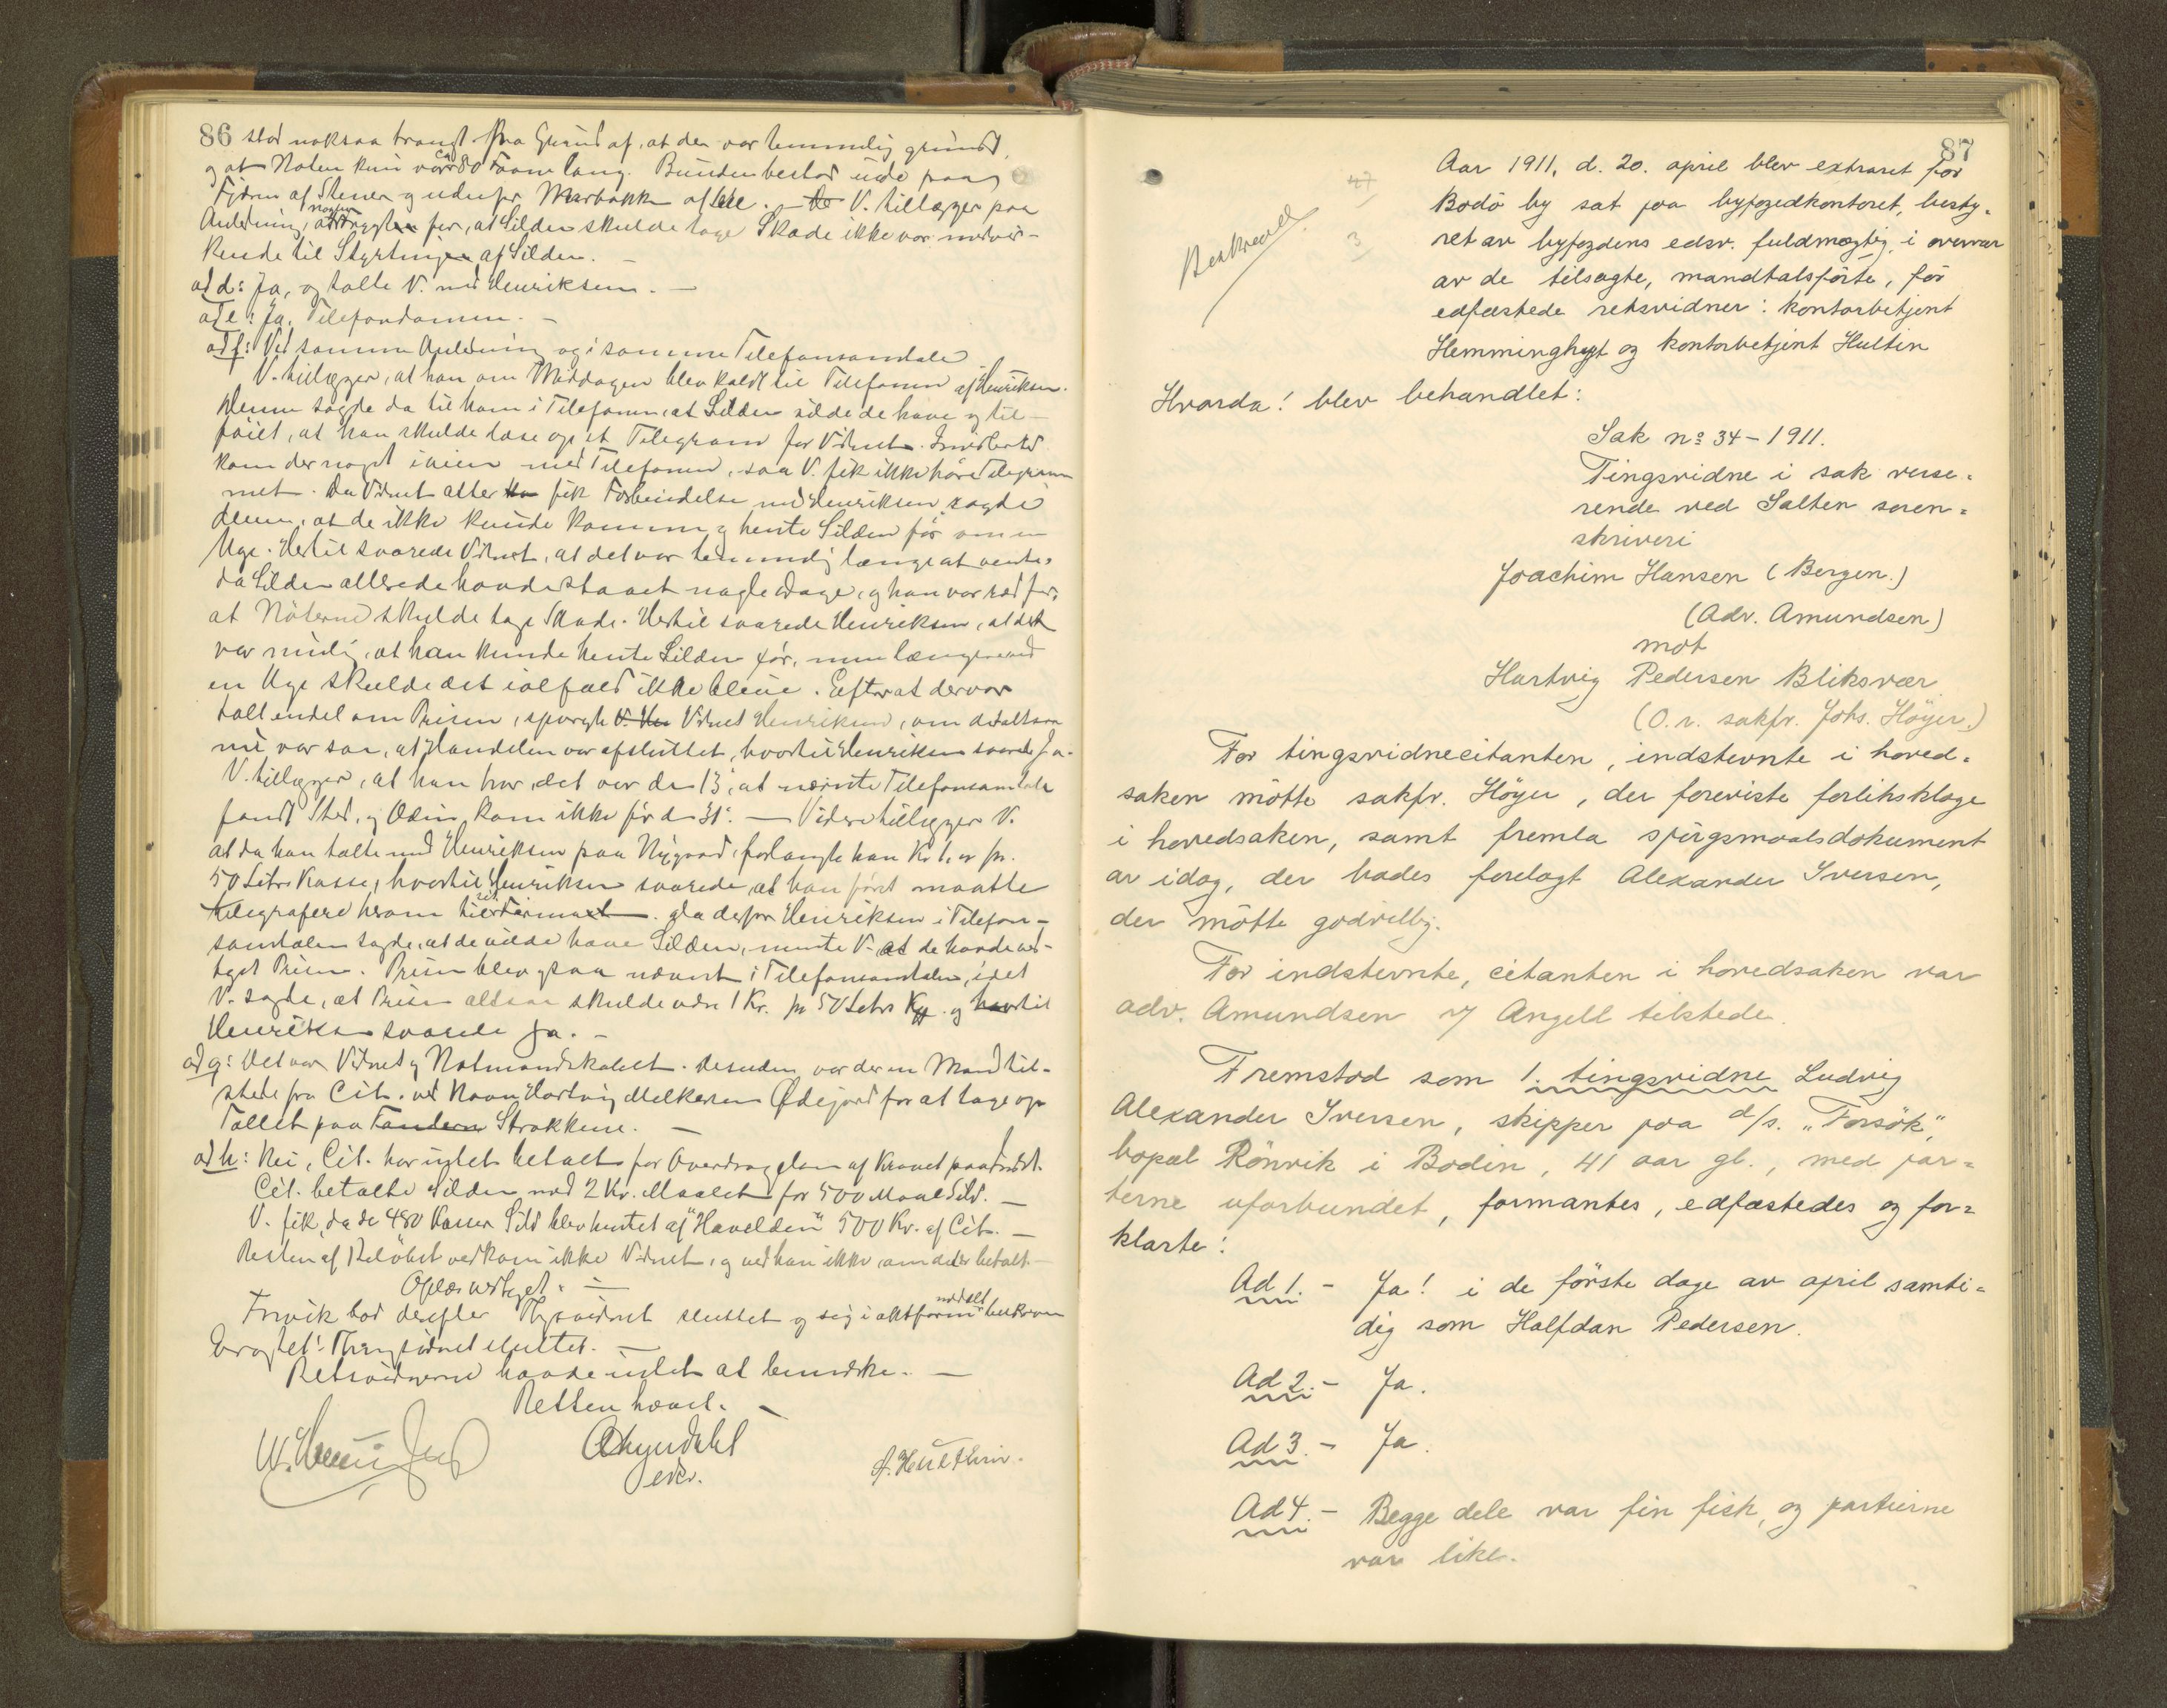 86 stod noksaa trangt paa Grund af, at der var temmelig grundt,
og at Noten kun var ca 80 Favne lang. Bunden bestod inde paa
Fjæren af Stener og udenfor Marbakken af Lere. V. tillægger paa
Andledning, at nogen Frygt for, at Silden skulde tage Skade ikke var medvir-
kende til Styrtningen af Silden. —
ad d: Ja, og talte V. med Henriksen. —
ad e: Ja, Telefondamen. —
ad f: Ved samme Anledning og i samme Telefonsamtale
V. tillægger, at han om Middagen blev kaldt til Telefonen af Henriksen.
Denne sagde da til ham i Telefonen, at Silden vilde de have og til-
føiet, at han skulde læse op et Telegram for Vidnet. Imidlertid
kom der noget iveien med Telefonen, saa V. fik ikke høre Telegram-
met. Da Vidnet atter fik Forbindelse med Henriksen sagde
denne, at de ikke kunde komme og hente Silden før om en
Uge. Hertil svarede Vidnet, at det var temmelig længe at vente,
da Silden allerede havde staaet nogle Dage, og han var ræd for,
at Nøterne skulde tage Skade. Hertil svarede Henriksen, at det
var mulig, at han kunde hente Silden før, men længere end
en Uge skulde det ialfald ikke blive. Efter at der var
talt endel om Prisen, spurgte Vidnet Henriksen, om det altsaa
nu var saa, at Handelen var afsluttet, hvortil Henriksen svarede Ja.
V. tillægger, at han tror, det var den 13de, at nævnte Telefonsamtale
fandt Sted, og Odin kom ikke før d 31te. — Videre tillægger V.
at da han talte med Henriksen paa Nygaard, forlangte han Kr 1,00 pr.
50 Liters Kasse, hvortil Henriksen svarede, at han først maatte
telegrafere herom til sit Firma. Da derfor Henriksen i Telefon-
samtalen sagde, at de vilde have Silden, mente V. at de havde ved-
taget Prisen. Prisen blev ogsaa nævnt i Telefonsamtalen, idet
V. sagde, at Prisen altsaa skulde være 1 Kr. pr 50 Liters K. og hertil
Henriksen svarede Ja. —
ad g: Det var Vidnet og Notmandskabet. Desuden var der en Mand til-
stede fra Cit. ved Navn Hartvig Melkersen Ødejord for at tage op
Tallet paa Tønderne Strokkene. —
ad h: Nei, Cit. har intet betalt for Overdragelsen af Kravet paa Indst.
Cit. betalte Silden med 2 Kr. Maalet for 500 Maal Sild. —
V. fik, da de 480 Kasser Sild blev hentet af "Havelden" 500 Kr. af Cit. —
Resten af Beløbet vedkom ikke Vidnet, og ved han ikke, om det er betalt. —
Oplæst vedtaget. —
bad derefter Thingsvidnet sluttet og sig i aktform meddelt beskreven
Eragtet: Thingsvidnet sluttet. —
Retsvidnerne havde intet at bemærke. —
Retten hævet. —
edsv.
A. Hulthin.
87
47
3
Beskrevet
Aar 1911, d. 20. april blev extraret for
Bodö by sat paa byfogedkontoret, besty-
ret av byfogdens edsv. fuldmægtig i overvær
av de tilsagte, mandtalsförte, för
edfæstede retsvidner: kontorbetjent
Hemminghyt og kontorbetjent Hultin
Hvorda! blev behandlet:
Sak no 34 - 1911.
Tingsvidne i sak verse-
rende ved Salten soren-
skriveri
Joachim Hansen (Bergen.)
(Adv. Amundsen)
mot
Hartvig Pedersen Bliksvær
(O.r. sakfr. Johs. Höyer.)
For tingsvidnecitanten, indstevnte i hoved-
saken mötte sakfr. Höyer, der foreviste forliksklage
i hovedsaken, samt fremla spörgsmaalsdokument
av idag, der bades forelagt Alexander Iversen,
der mötte godvillig.
For indstevnte, citanten i hovedsaken var
adv. Amundsen v/ Angell tilstede.
Fremstod som 1. tingsvidne Ludvig
Alexander Iversen, skipper paa d/s. "Forsök",
bopæl Rönvik i Bodin, 41 aar gl., med par-
terne uforbundet, formantes, edfæstedes og for-
klarte:
Ad 1. - Ja! i de förste dage av april samti-
dig som Halfdan Pedersen.
Ad 2. - Ja.
Ad 3. - Ja.
Ad 4. - Begge dele var fin fisk, og partierne
var like.